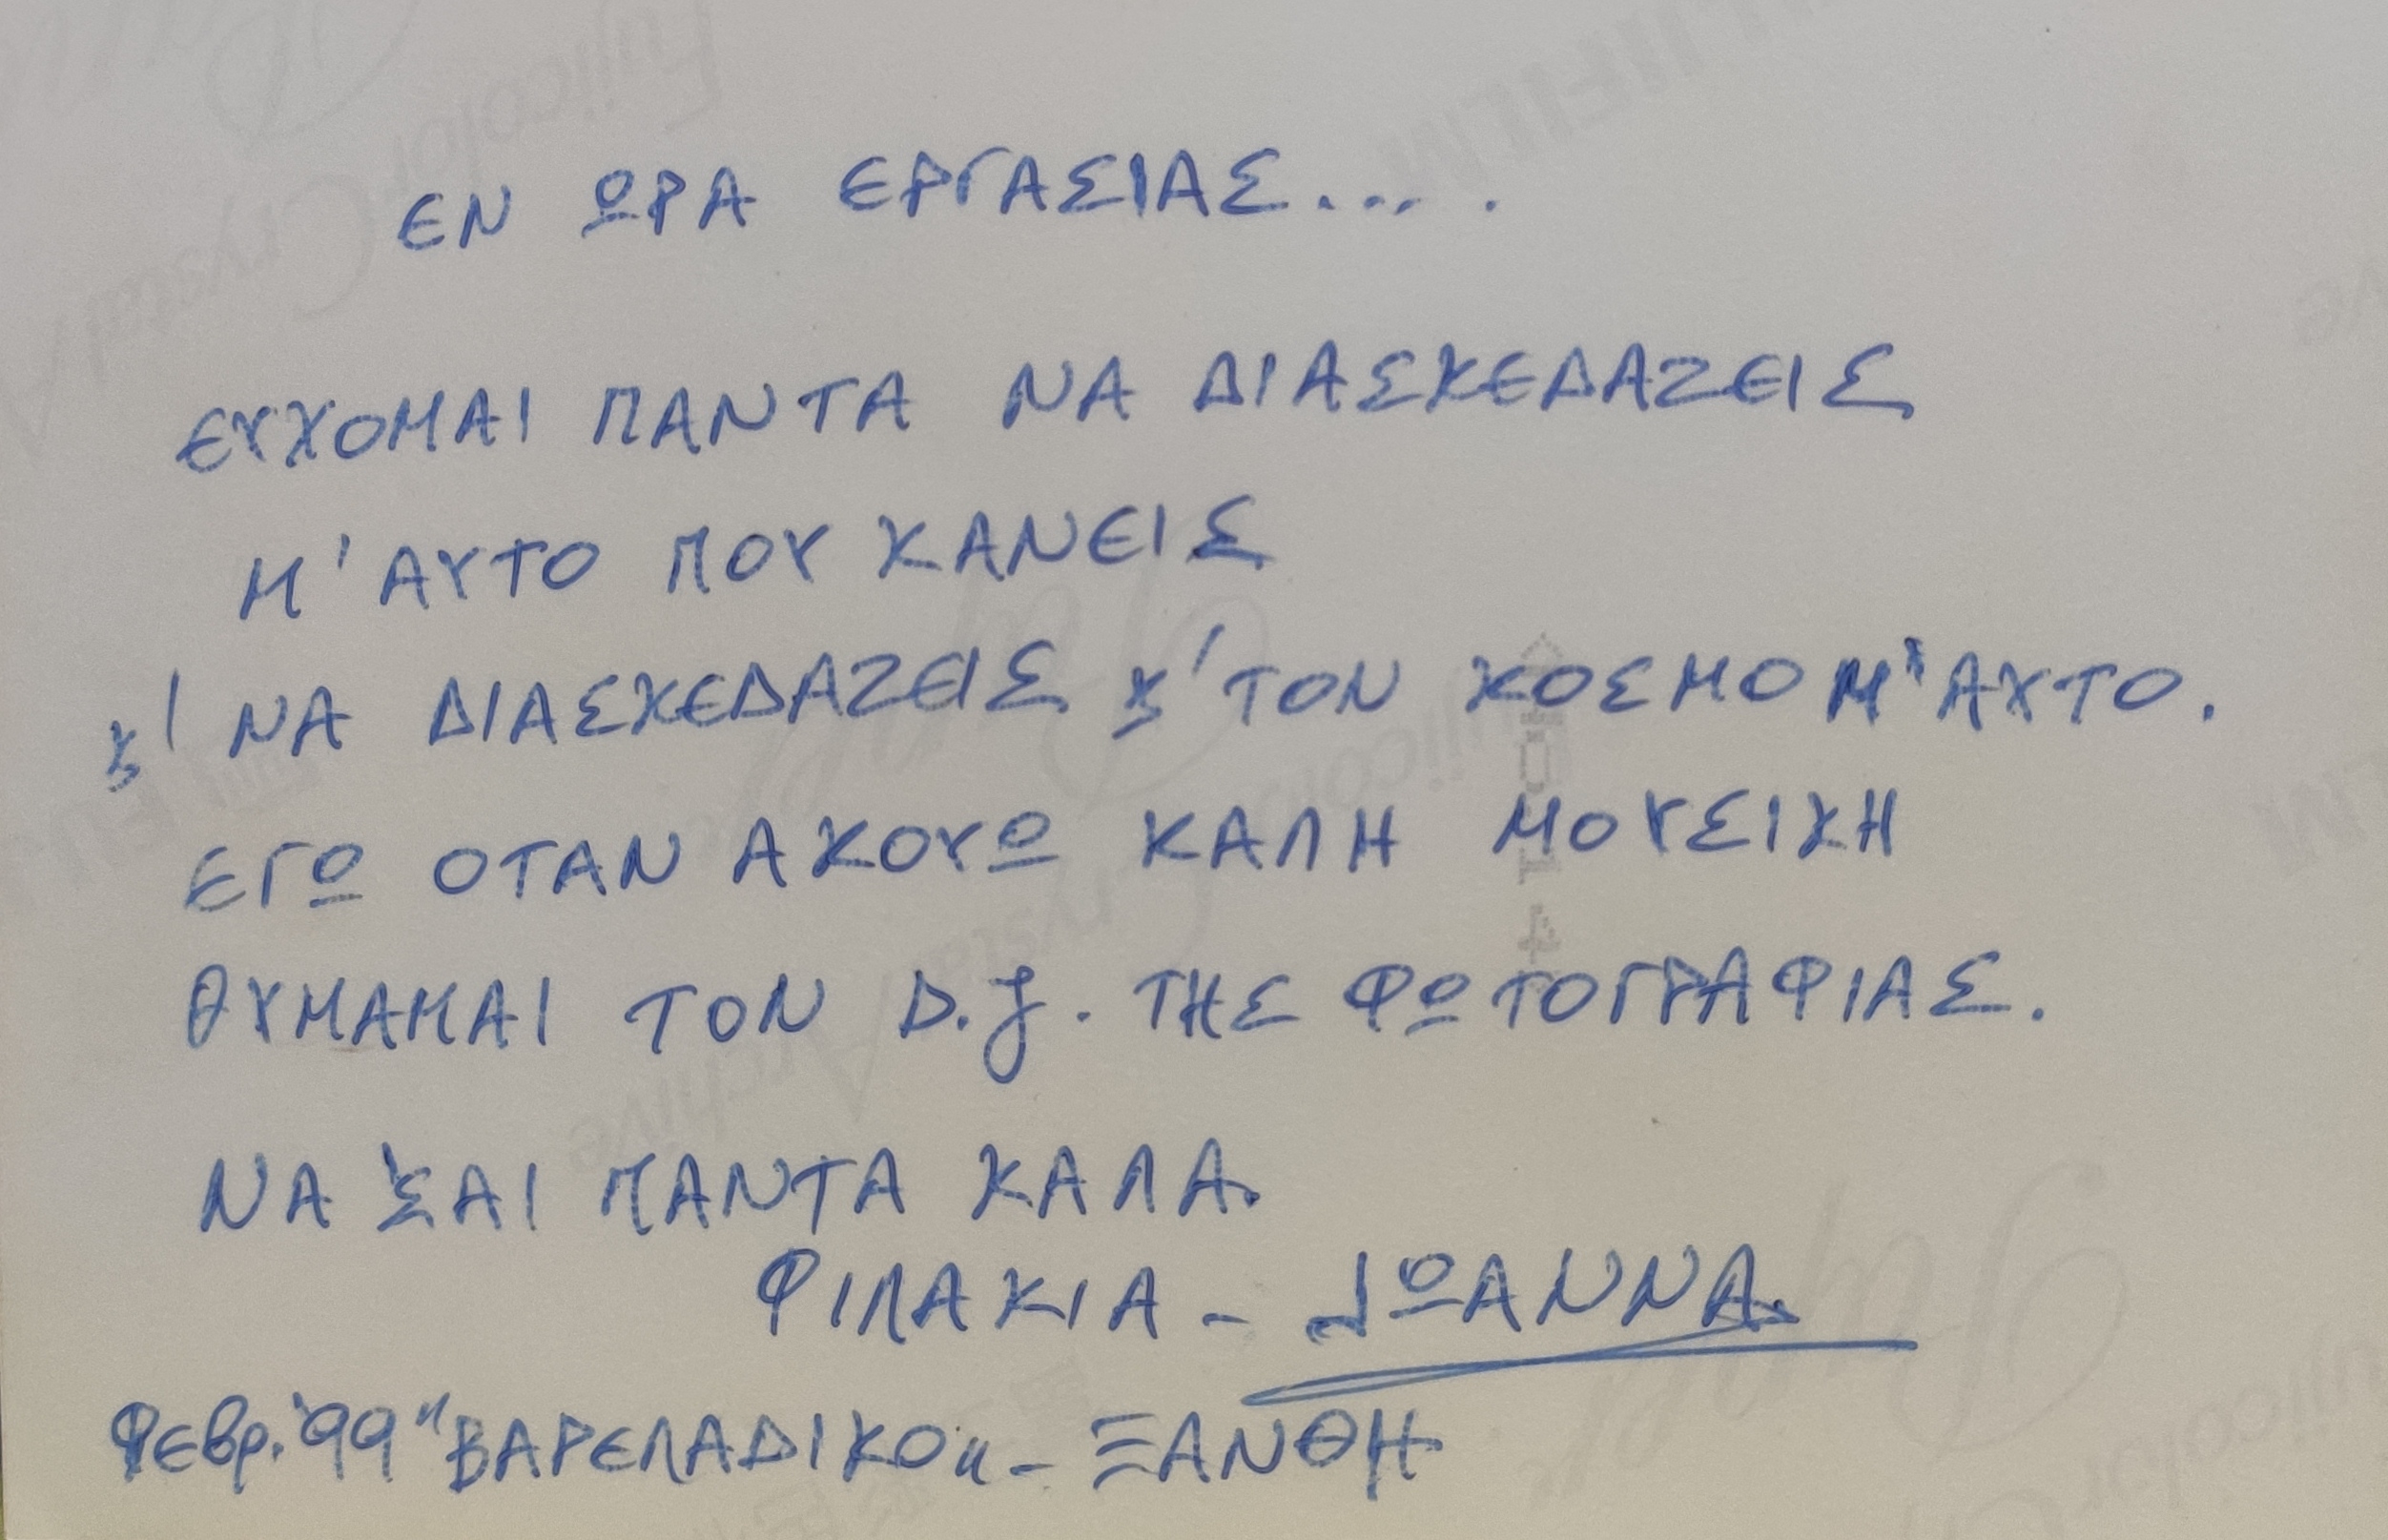 ΕΝ ΩΡΑ ΕΡΓΑΣΙΑΣ... .
ΕΥΧΟΜΑΙ ΠΑΝΤΑ ΝΑ ΔΙΑΣΚΕΔΑΖΕΙΣ
Μ' ΑΥΤΟ ΠΟΥ ΚΑΝΕΙΣ
ϗ' ΝΑ ΔΙΑΣΚΕΔΑΖΕΙΣ ϗ' ΤΟΝ ΚΟΣΜΟ Μ' ΑΥΤΟ.
ΕΓΩ ΟΤΑΝ ΑΚΟΥΩ ΚΑΛΗ ΜΟΥΣΙΚΗ
ΘΥΜΑΜΑΙ ΤΟΝ D.J. ΤΗΣ ΦΩΤΟΓΡΑΦΙΑΣ.
ΝΑ 'ΣΑΙ ΠΑΝΤΑ ΚΑΛΑ.
ΦΙΛΑΚΙΑ - ΙΩΑΝΝΑ.
Φεβρ. '99 "ΒΑΡΕΛΑΔΙΚΟ" - ΞΑΝΘΗ